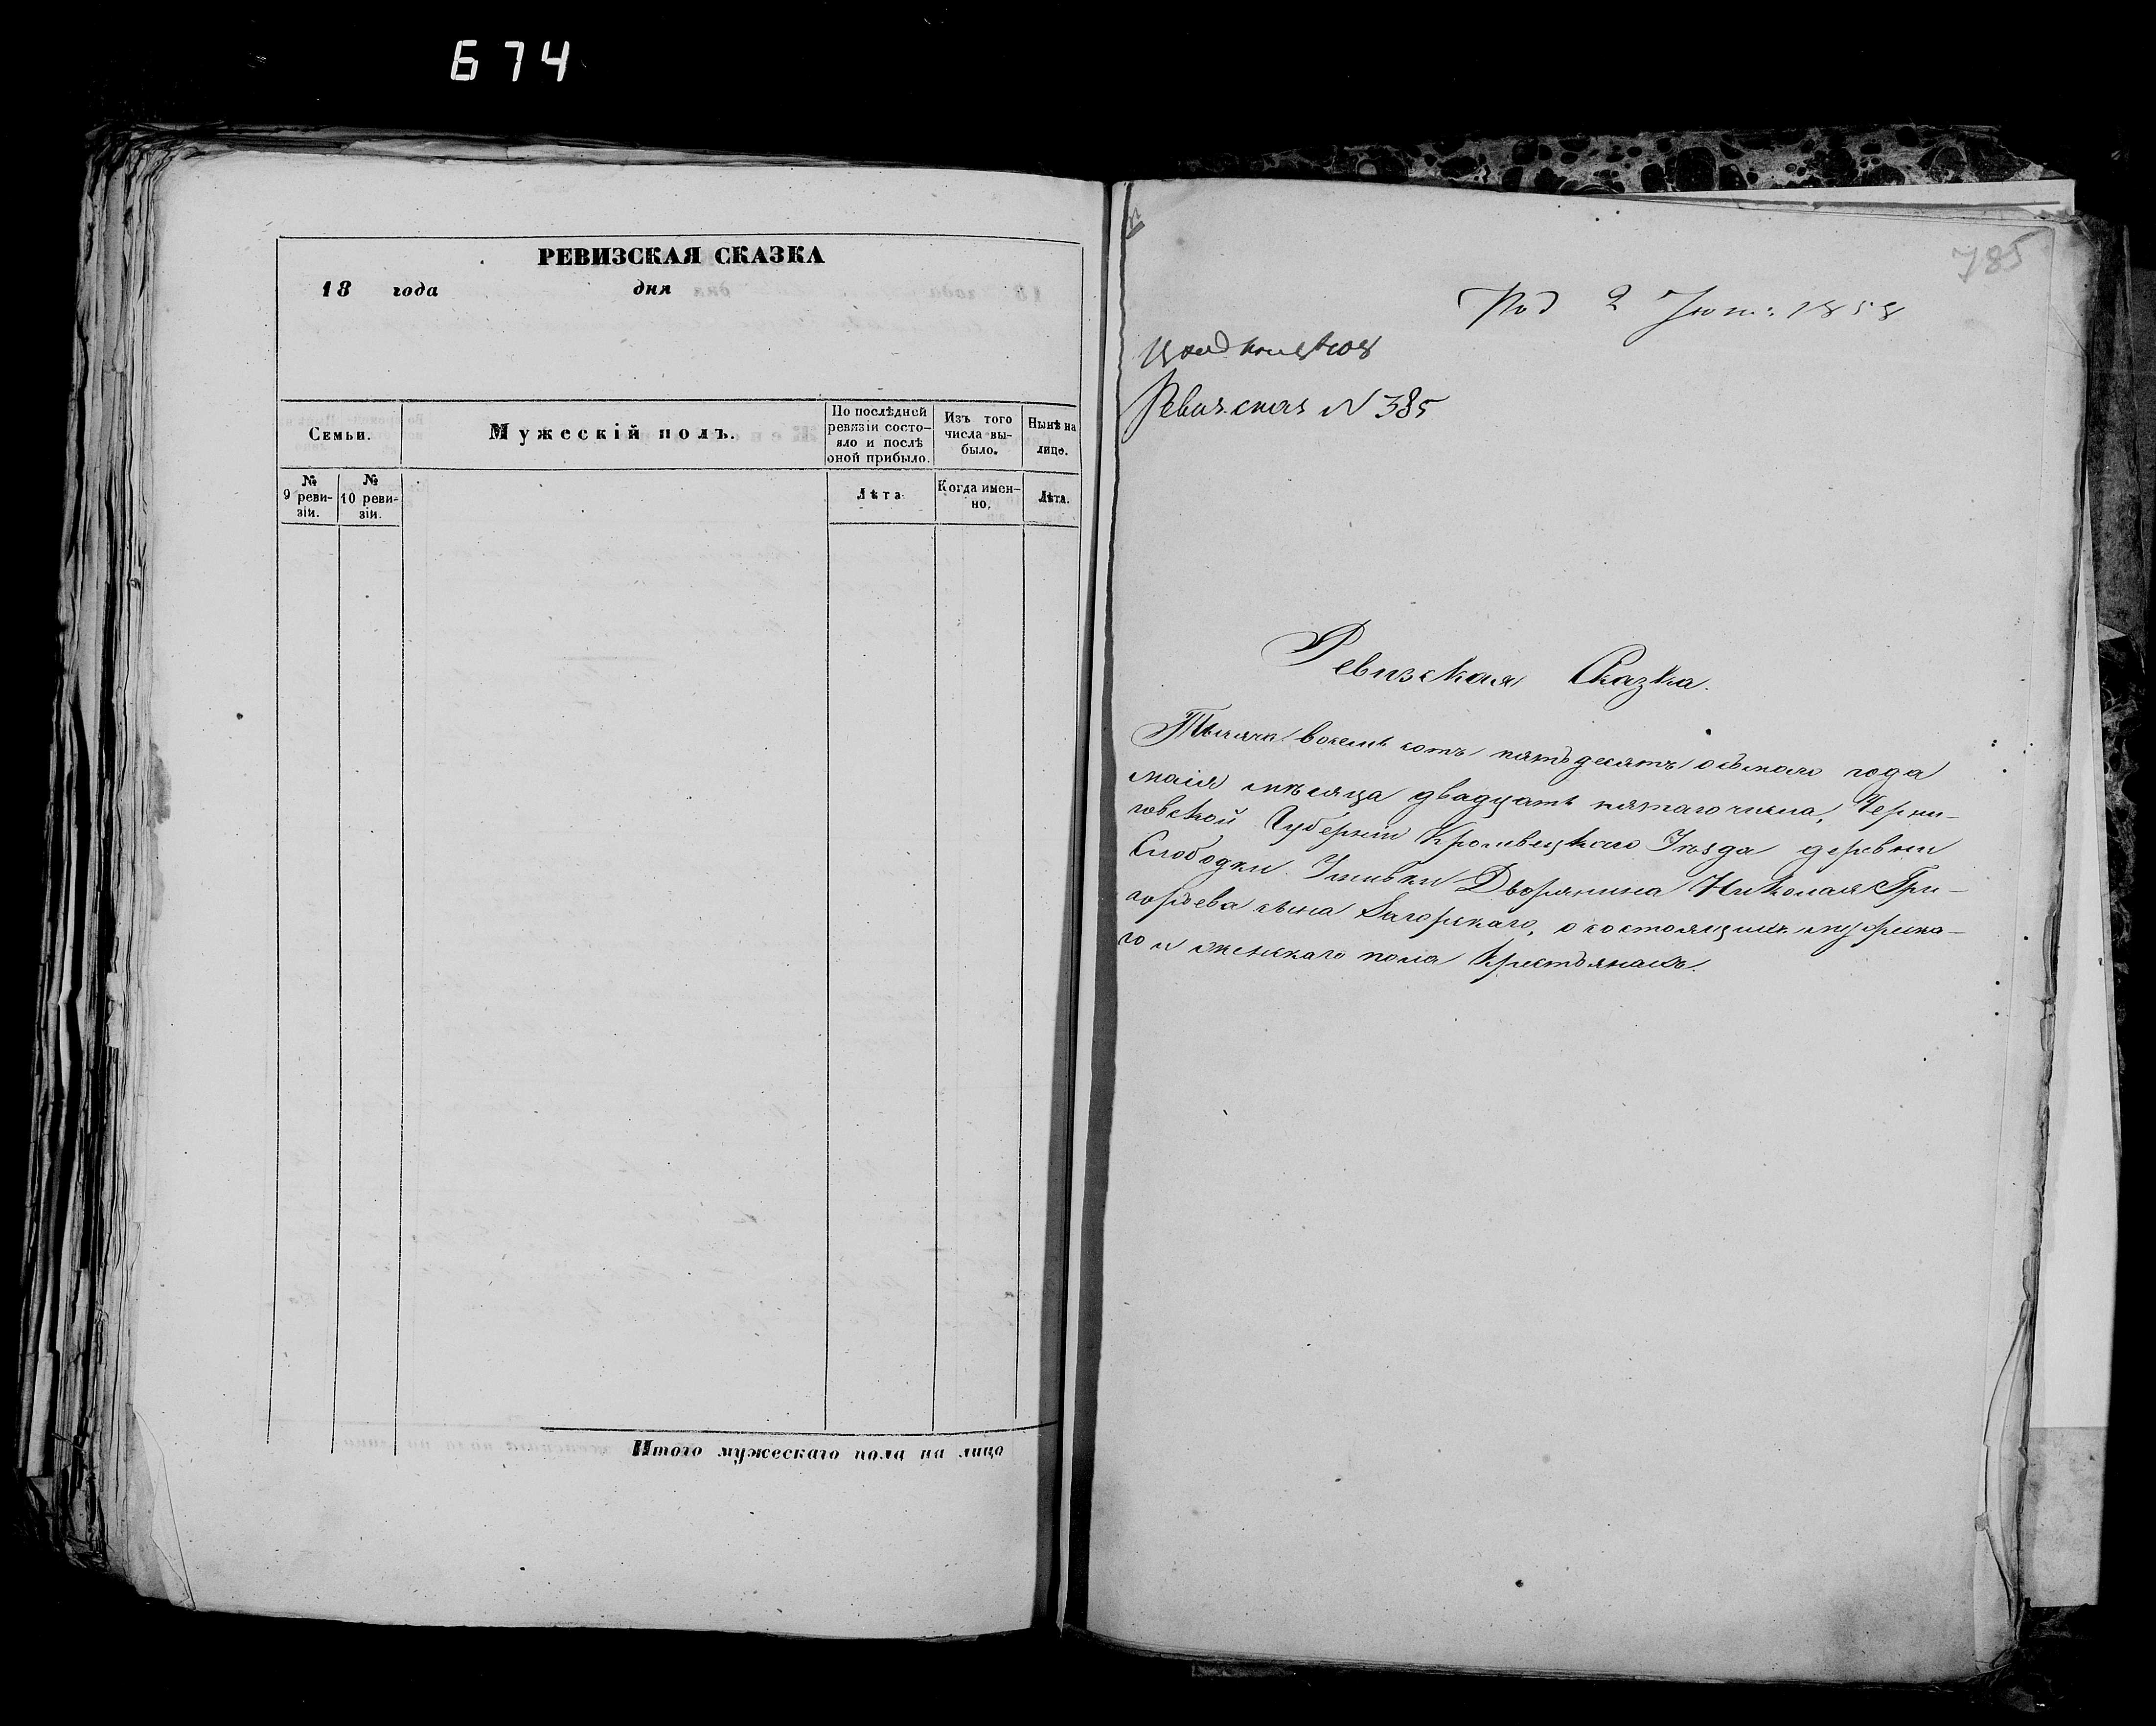 674
РЕВИЗСКАЯ СКАЗКА
18 года дня
Семьи.
Мужескій полъ.
По послѣдней
ревизіи состо-
яло и послѣ
оной прибыло.
Изъ того
числа вы-
было.
Нынѣ на
лицо.
№
9 реви-
зіи.
№
10 реви-
зіи.
Лѣта
Когда имен-
но.
Лѣта.
Итого мужескаго пола на лицо
785
Под 2 1858
N 385
Ревизская Сказка.
Тысяча восемь сотъ пятьдесятъ осьмаго года
маія мѣсяца двадцать пятаго числа, Черни-
говской Губерніи Кролевецкаго Уѣзда деревни
Слободки Дворянина Николая Гри-
горьева сына Загорскаго, о состоящихъ мужеска-
го и женскаго пола крестьянахъ.